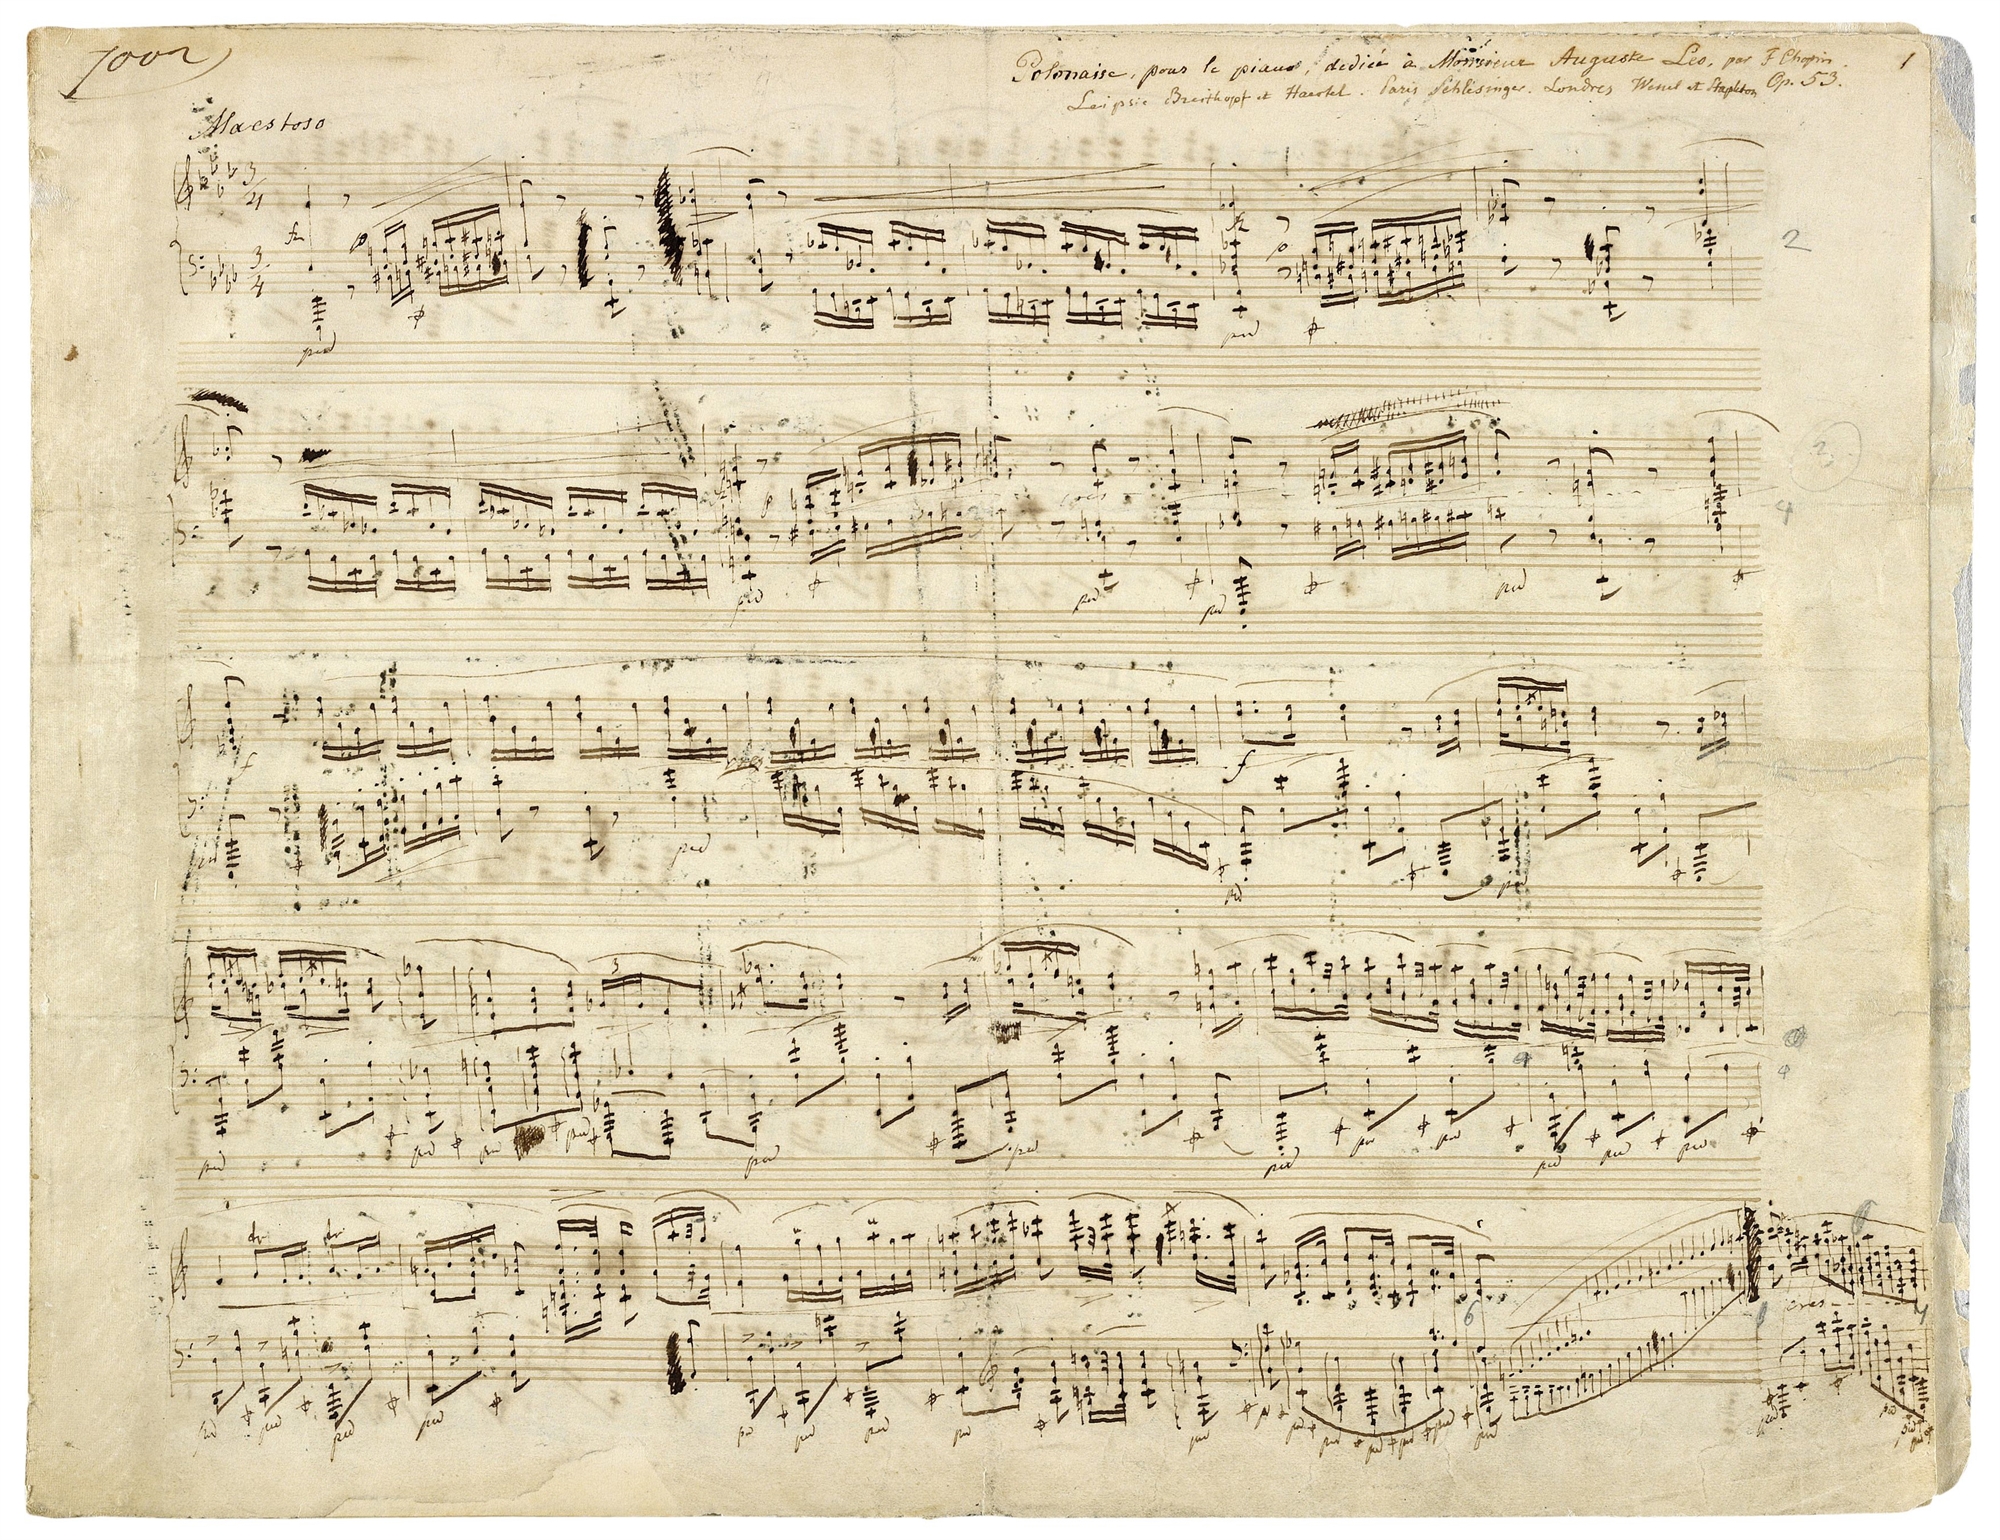 7002
Polonaise, pour le piano, dediée à Monsieur Auguste Leo, par F Chopin. 1
Leipsic Breitkopf et Haertel. Paris Schlesinger. Londres Wessel et Stapleton Op. 53.
Maestoso
3/4
3/4
fz
p
ped
ped
2
p
cres
ped
ped
ped
ped
4
f
f
ped
ped
ped
3
4
ped
ped
ped
ped
ped
ped
ped
ped
ped
ped
ped
ped
tr
tr
6
cres
ped
ped
ped
ped
ped
ped
ped
ped
ped
ped
ped
ped
ped
ped